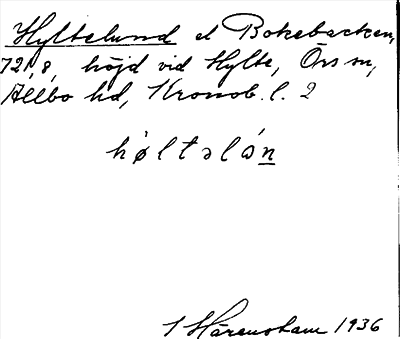 Hyltelund el Bokebacken,
721,8, höjd vid Hylte, Örs sn,
Allbo hd, Kronob. l. 2
høltəlón
Härenstam 1936